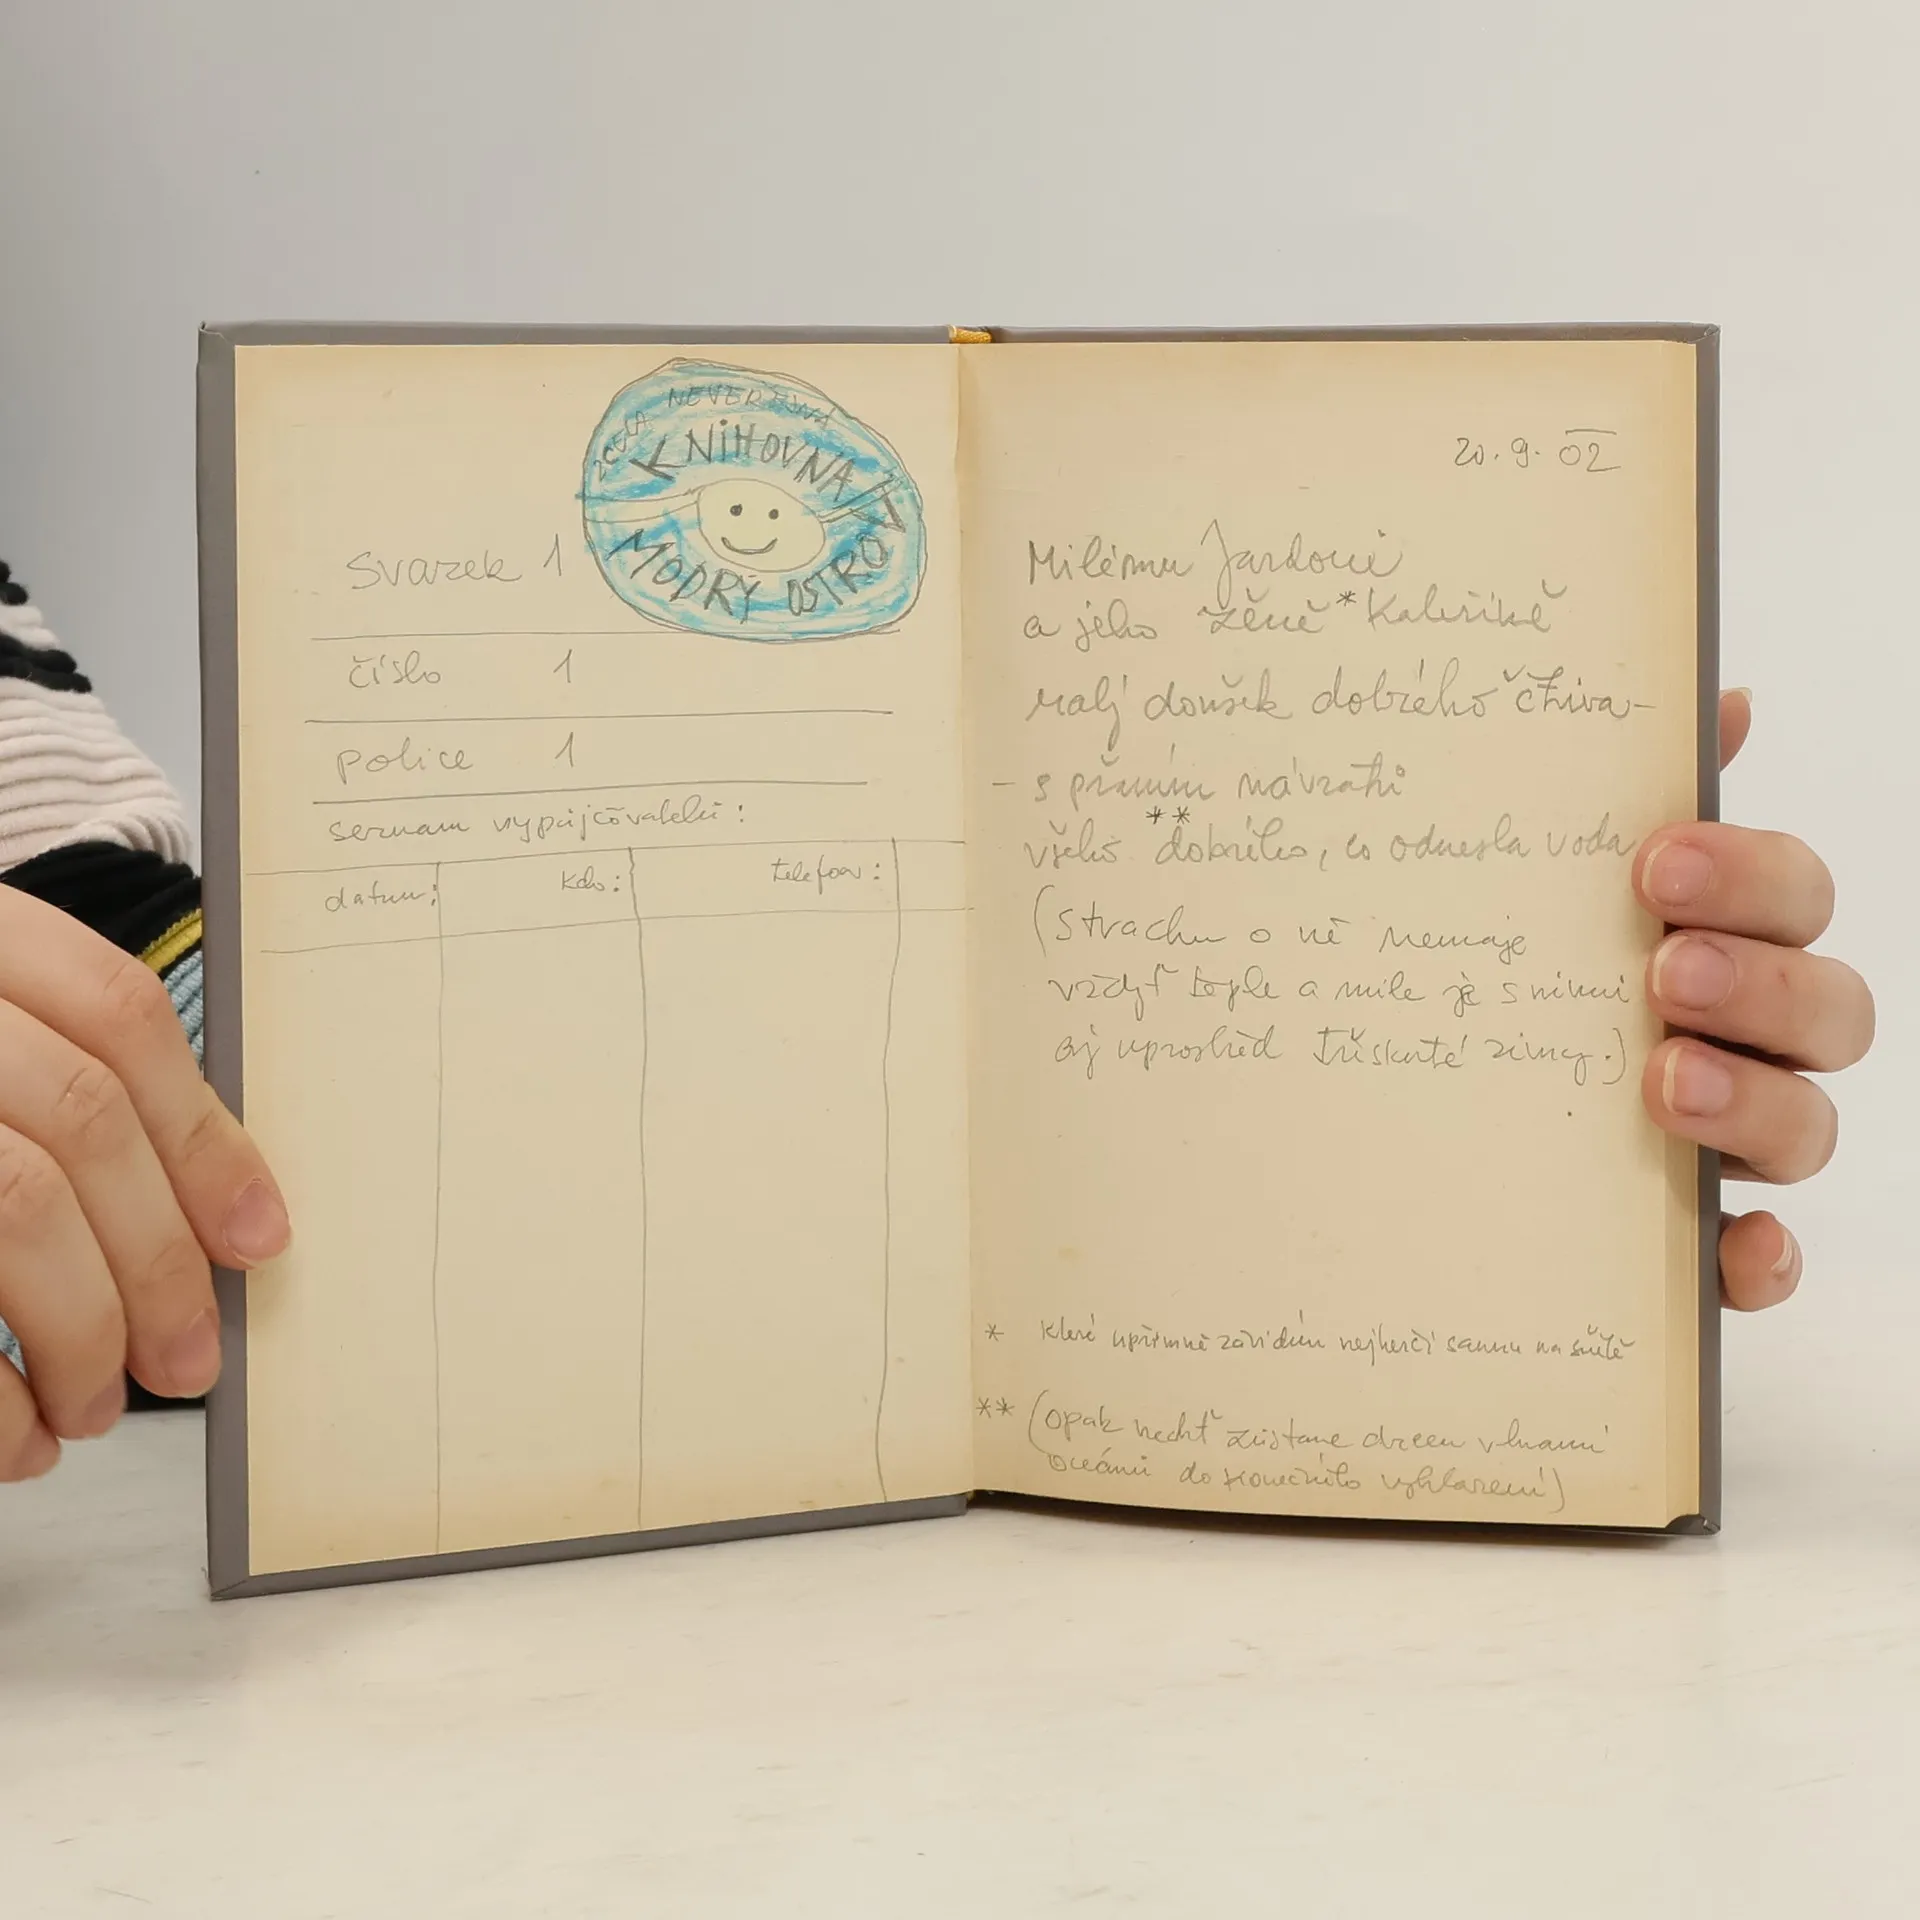 ZCELA NEVEŘEJNÁ
KNIHOVNA
MODRÝ OSTROV
svazek 1
číslo 1
police 1
seznam vypůjčovatelů:
datum: kdo: telefon:
20. 9. 02
Milému Jardovi
a jeho ženě * Kateřině
malý doušek dobrého čtiva –
– s přáním návratu
všeho ** dobrého, co odnesla voda
(strachu o ně nemaje
vždyť teple a mile je s nimi
aj uprostřed třeskuté zimy.)
* které upřímně závidím nejhezčí saunu na světě
** (opak nechť zůstane dřcen vlnami
oceánů do konečného vyhlazení)